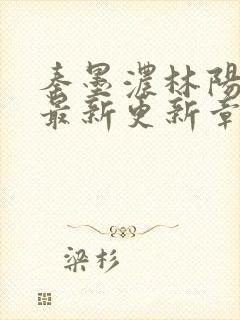 秦墨濃林陽
最新更新章
梁杉